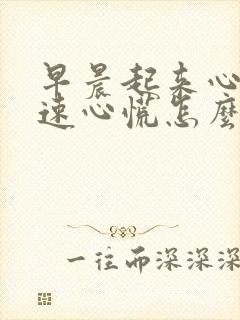 早晨起来心
速心慌怎麽
一往而深深深